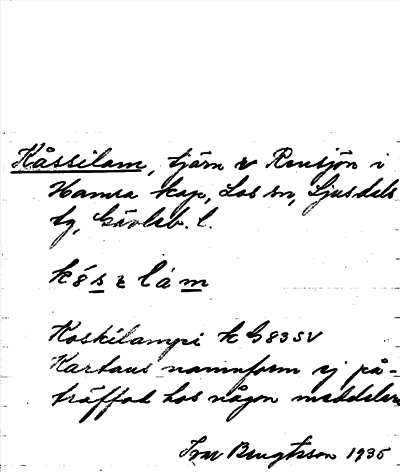 Kåssilam, tjärn v Rensjön i
Hamra kap, Los sn, Ljusdals
tg, Gävleb. l.
Koskilampi k G83SV
Kartans namnform ej på-
träffad hos någon meddelare
Ivar Bengtsson 1935